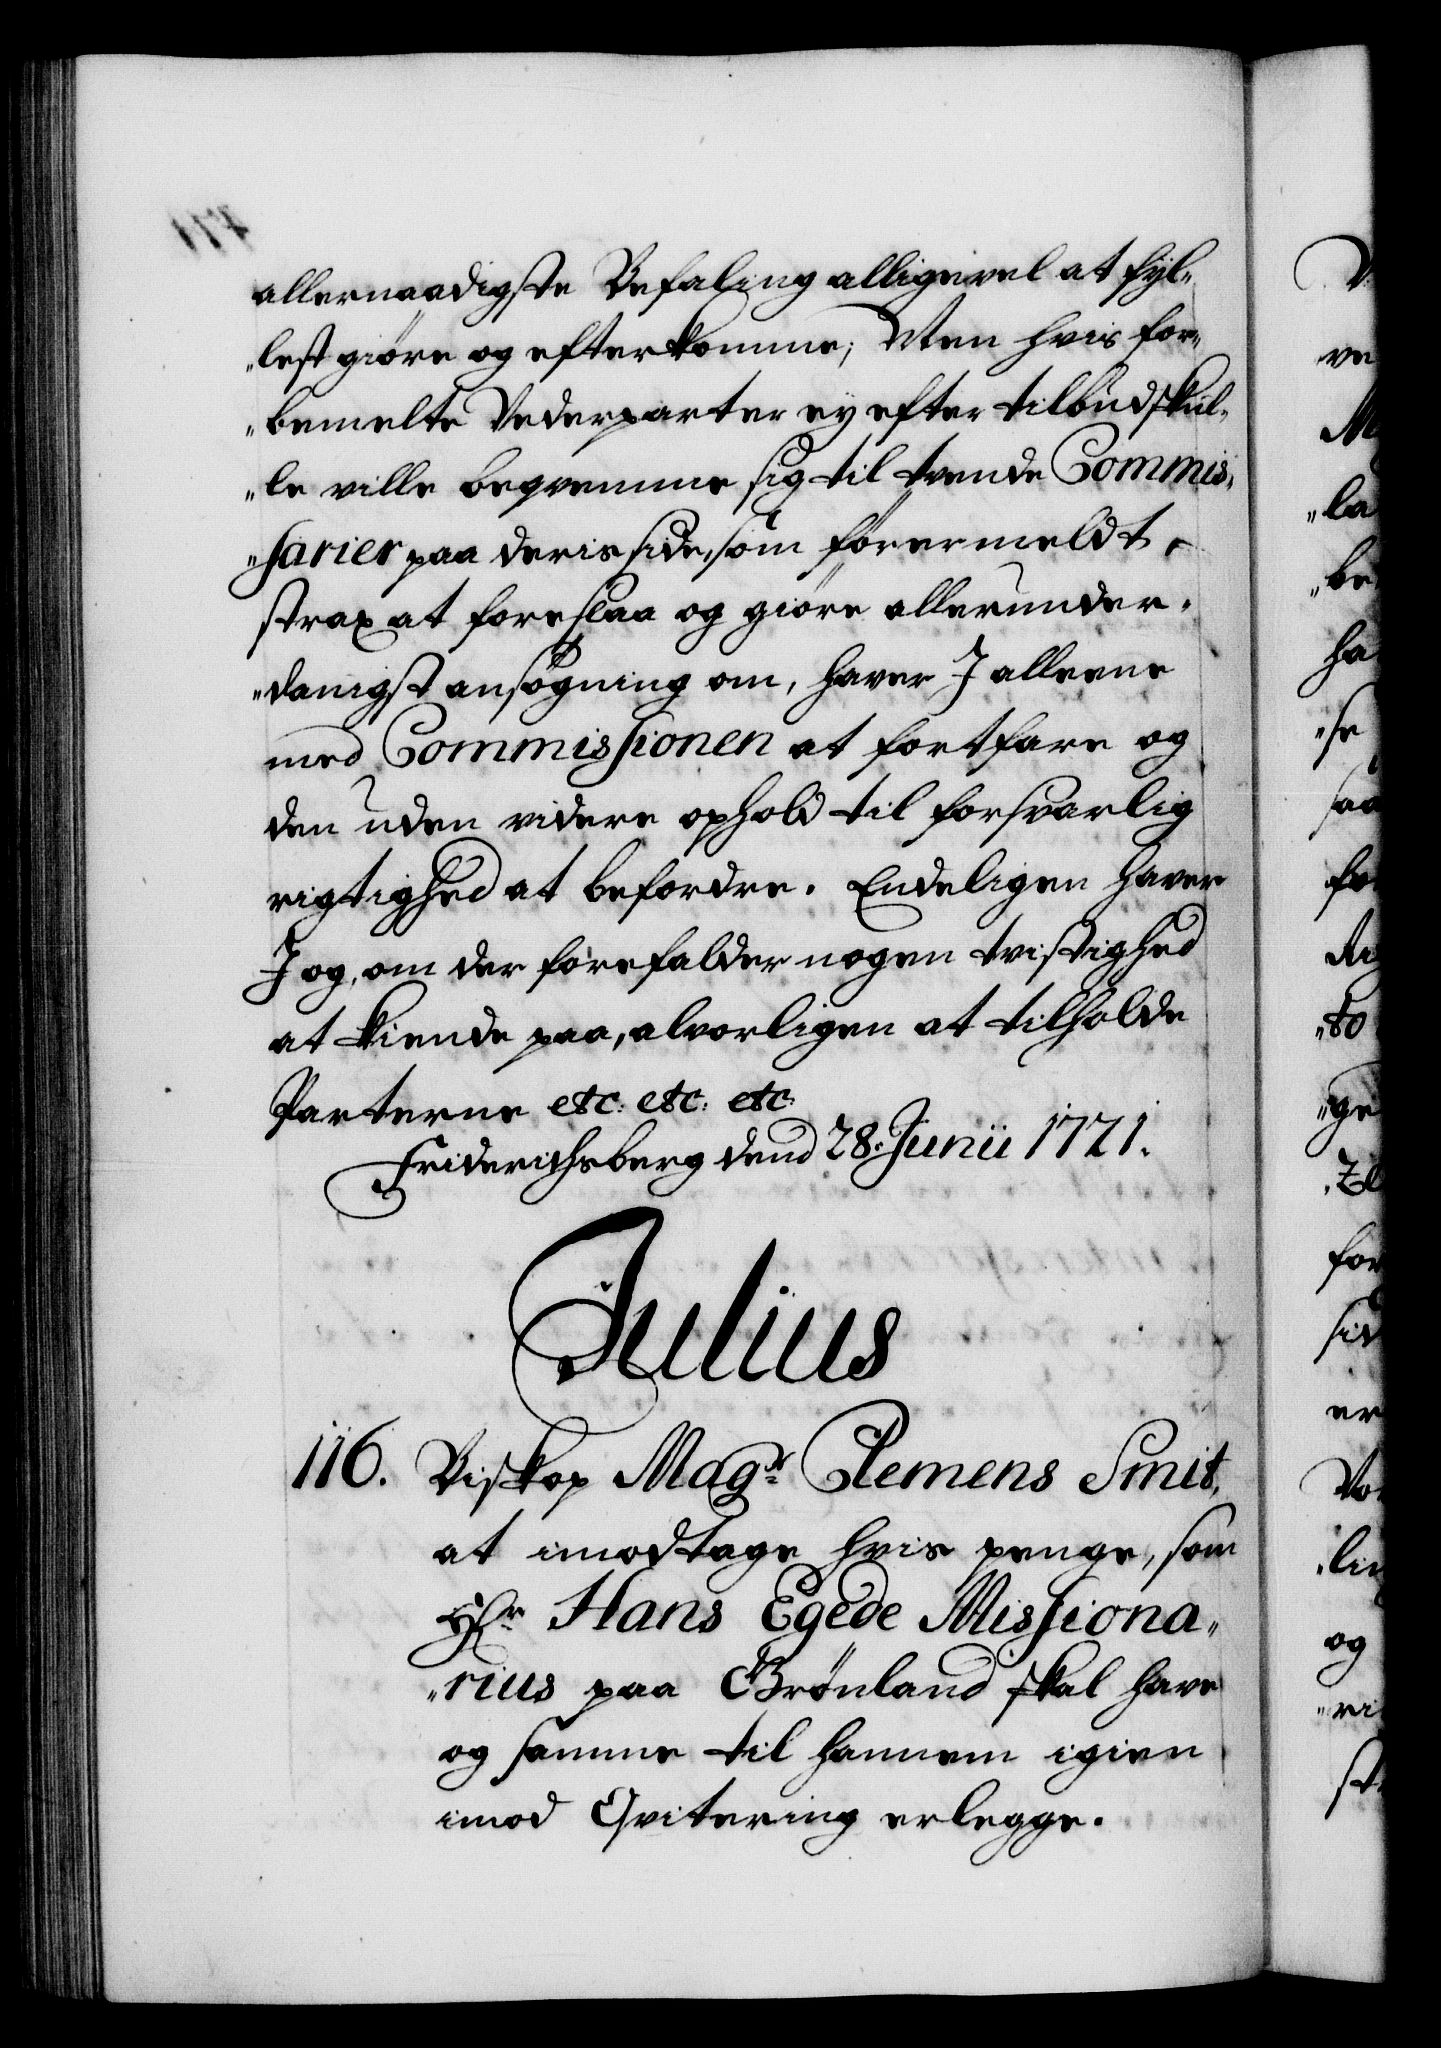 allernaadigste Befaling alligevel at fyl„
„lest giøre og efterkomme; Men hvis for„
„bemelte Vederparter ey efter tilbud skul„
„le ville beqvemme sig til tvende Commis„
„sarier paa deris side, som førermeldt,
strax at foreslaa og giøre allerunder„
„danigst ansøgning om, haver I alleene
med Commissionen at fortfare og
den uden videre ophold til forsvarlig
rigtighed at befordre. Endeligen haver
I og, om der forefalder nogen tvistighed
at kiende paa, alvorligen at tilholde
Parterne etc: etc: etc:
Friderichsberg dend 28. Junii 1721.
Julius
116. Biskop Magr. Clemens Smit,
at imodtage hvis penge, som
Hr. Hans Egede Missiona„
„rius paa Grønland skal have
og samme til hannem igien
imod Qvitering erlegge.